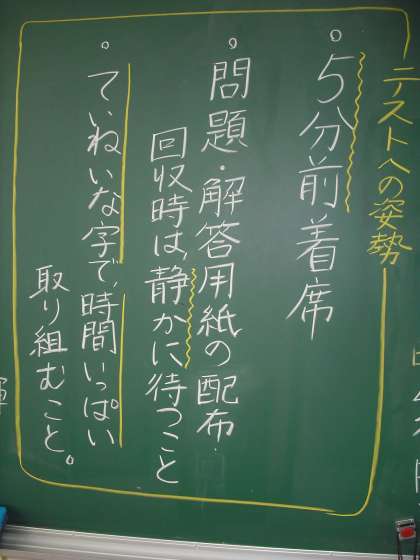 テストへの姿勢
。5分前着席
。問題・解答用紙の配布・
回収時は、静かに待つこと
。ていねいな字で、時間いっぱい
取り組むこと。